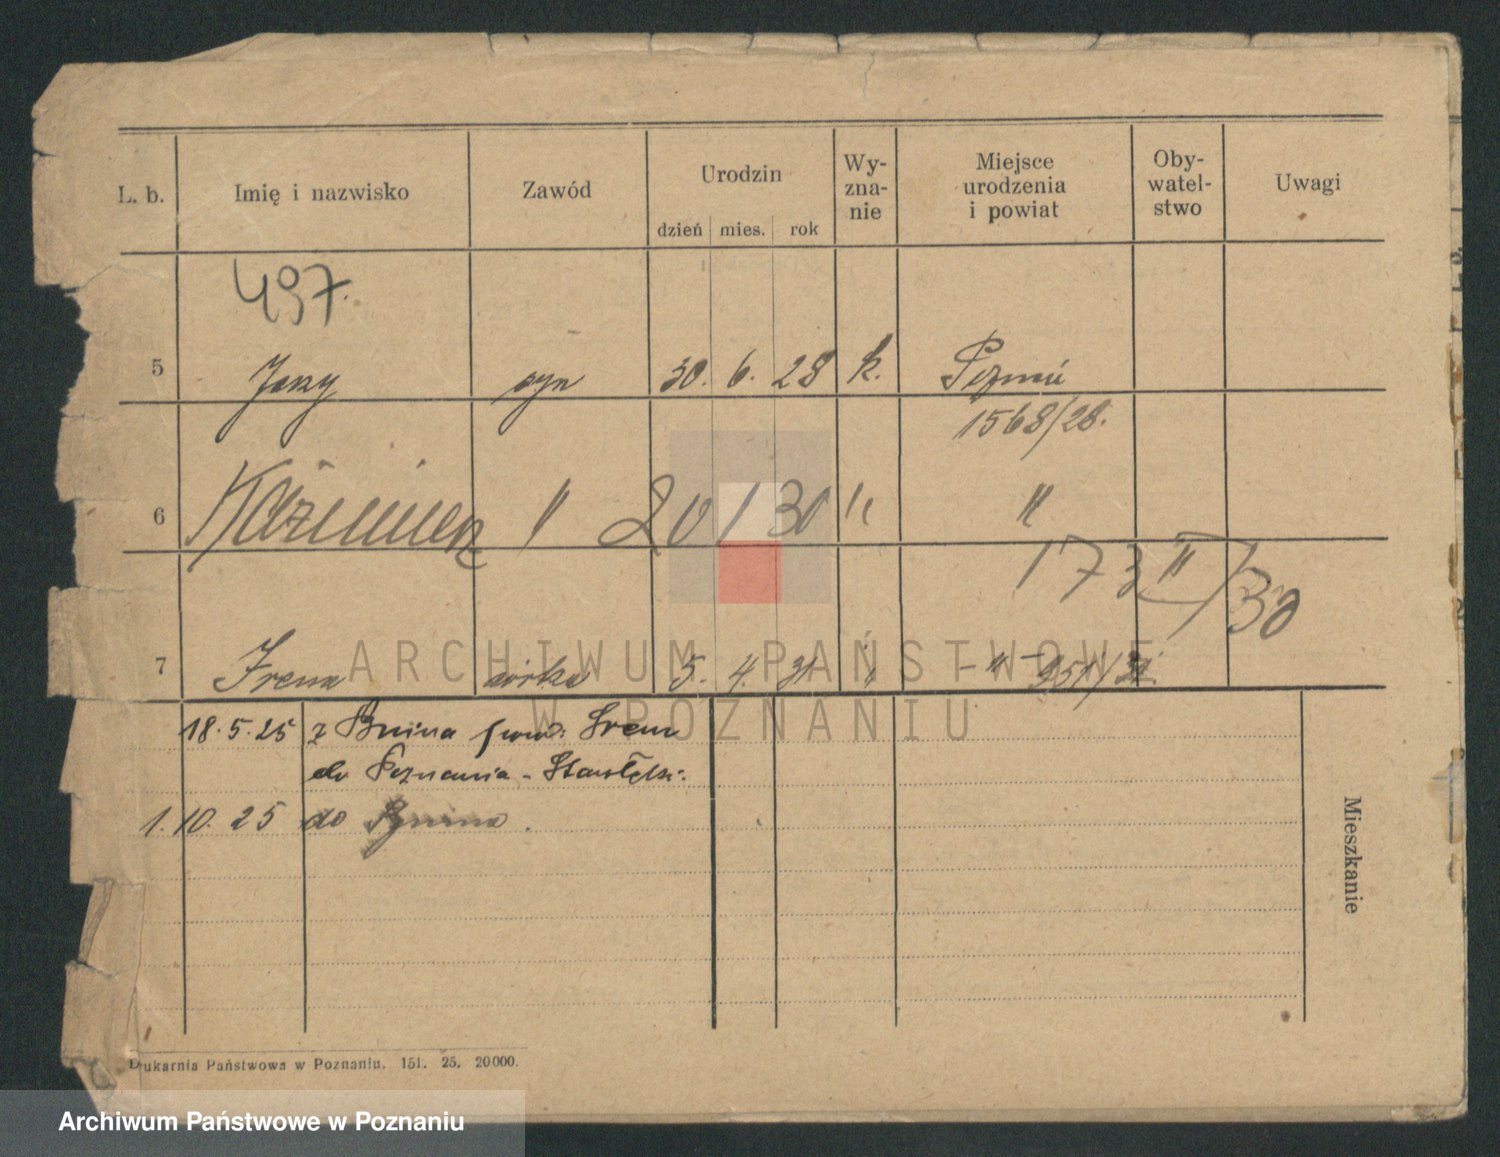 L. b. Imię i nazwisko Zawód Urodzin dzień mies. rok Wy-zna-nie Miejsce urodzenia i powiat Oby-watel-stwo Uwagi
497.
5 Jerzy syn 30. 6. 28 k. Poznań
1568/28.
6 Kazimierz " 20 1 30 " "
173 II/30
7 Irena córka 5. 4. 31 " - " - 951/31
ARCHIWUM PAŃSTWOWE
W POZNANIU
18.5.25 z Bnina pow. Śrem
do Poznania - Starołęki.
1.10.25 do Bnina.
Mieszkanie
Drukarnia Państwowa w Poznaniu. 151. 25. 20000.
Archiwum Państwowe w Poznaniu